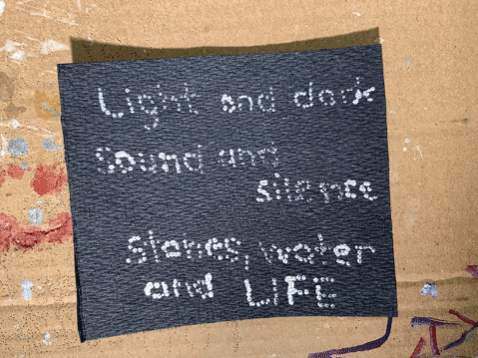 Light and dark
Sound and
silence
Stones, water
and LIFE